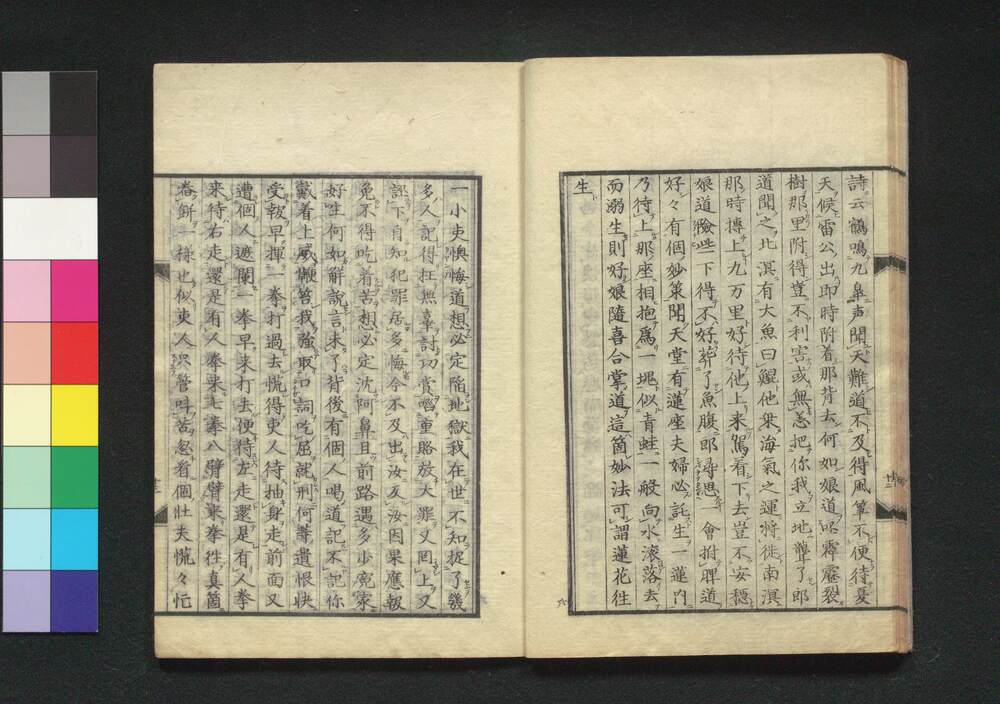 詩云鶴鳴九皐声聞天難道不及得風箏不便待憂
天候雷公出即時附着那背去何如娘道咄霹靂裂
樹那里附得豈不利害或無恙把你我立地聾了郎
道聞之北溟有大魚曰鯤他乗海氣之運将徙南溟
那時摶上九万里好待他上来駕着下去豈不安穏
娘道險些下得不好葬了魚腹郎尋思一會拊脾道
好々有個妙策聞天堂有蓮座夫婦必託生一蓮內
乃待上那座相抱爲一塊似青蛙一般向水滾落去
而溺生則好娘隨喜合掌道這箇妙法可謂蓮花往
生
一小吏懊悔道想必定陷地獄我在世不知捉了幾
多人記得枉無辜討功賞啗重賂放大罪又罔上又
誣下自知犯罪居多悔今不及出汝反汝因果應報
免不得吃着苦想必定沈阿鼻且前路遇多少寃家
好生何如解說言未了背後有個人喝道記不記你
戴着上威鞭笞我強取口詞吃屈就刑何等遺恨快
受報早揮一拳打過去慌得吏人待抽身走前面又
遭個人遮闌一拳早来打去便待左走還是有人拳
来待右走還是有人拳来七拳八臂臂来拳往真箇
春餅一様也似吏人只管呌苦忽看個壮夫慌々忙